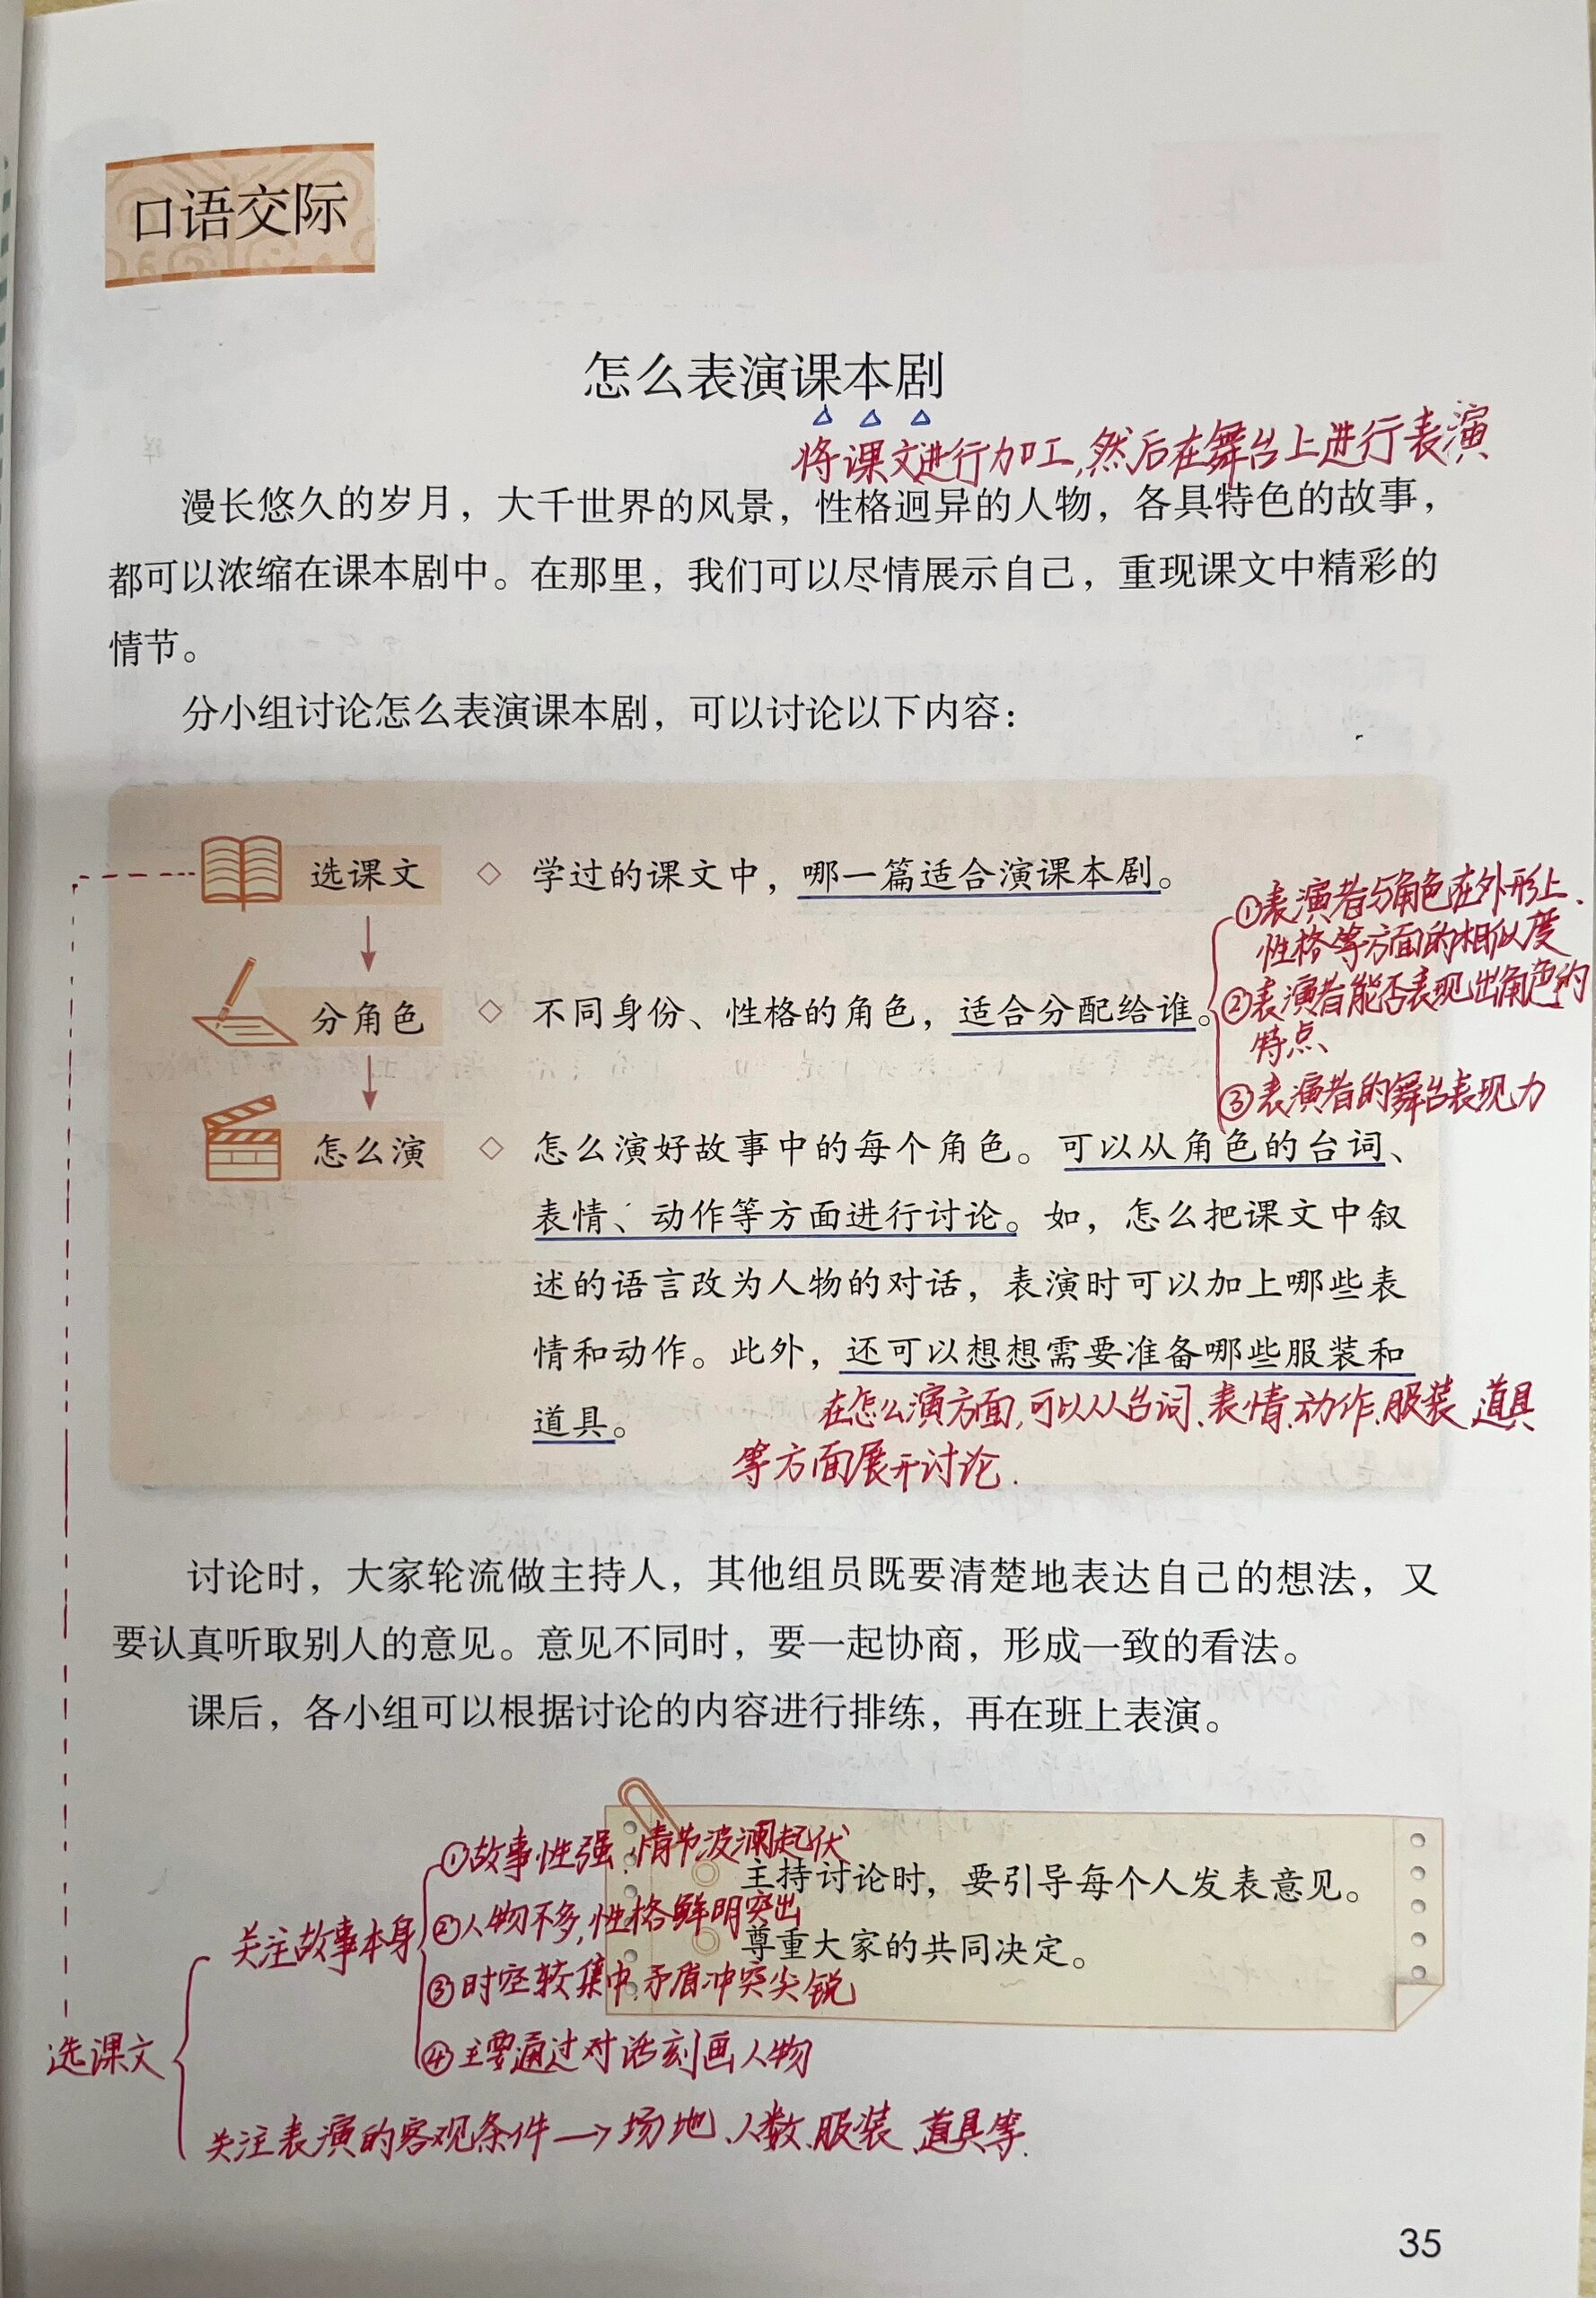 口语交际
怎么表演课本剧
将课文进行加工,然后在舞台上进行表演
漫长悠久的岁月，大千世界的风景，性格迥异的人物，各具特色的故事，
都可以浓缩在课本剧中。在那里，我们可以尽情展示自己，重现课文中精彩的
情节。
分小组讨论怎么表演课本剧，可以讨论以下内容：
选课文 ◇ 学过的课文中，哪一篇适合演课本剧。
分角色 ◇ 不同身份、性格的角色，适合分配给谁。
①表演者与角色在外形上、
性格等方面的相似度
②表演者能否表现出角色的
特点、
③表演者的舞台表现力
怎么演 ◇ 怎么演好故事中的每个角色。可以从角色的台词、
表情、动作等方面进行讨论。如，怎么把课文中叙
述的语言改为人物的对话，表演时可以加上哪些表
情和动作。此外，还可以想想需要准备哪些服装和
道具。
在怎么演方面,可以从台词、表情、动作、服装、道具
等方面展开讨论.
讨论时，大家轮流做主持人，其他组员既要清楚地表达自己的想法，又
要认真听取别人的意见。意见不同时，要一起协商，形成一致的看法。
课后，各小组可以根据讨论的内容进行排练，再在班上表演。
主持讨论时，要引导每个人发表意见。
尊重大家的共同决定。
选课文
关注故事本身
①故事性强,情节波澜起伏
②人物不多,性格鲜明突出
③时空较集中,矛盾冲突尖锐
④主要通过对话刻画人物
关注表演的客观条件→场地、人数、服装、道具等.
35